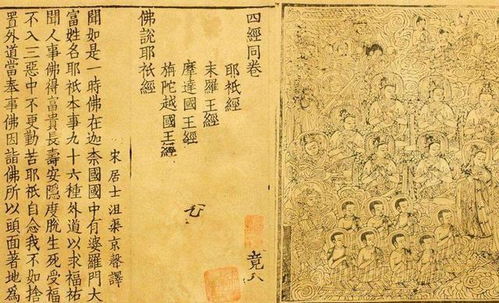 四經同卷
耶祇經
末羅王經
摩達國王經
旃陀越國王經
竟八
佛說耶祇經
宋居士沮渠京聲譯
聞如是一時佛在迦柰國國中有婆羅門大
富姓名耶祇本事九十六種外道以求福祐
聞人事佛得富貴長壽安隱度脫生死受福
不入三惡中不更勤苦耶祇自念我不如捨
置外道當奉事佛因詣佛所以頭面著地為